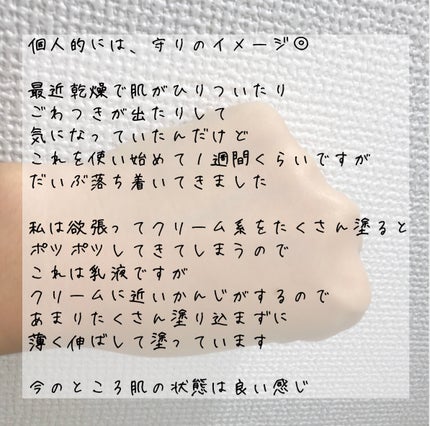 個人的には、守りのイメージ◎
最近乾燥で肌がひりついたり
ごわつきが出たりして
気になっていたんだけど
これを使い始めて1週間くらいですが
だいぶ落ち着いてきました
私は欲張ってクリーム系をたくさん塗ると
ポツポツしてきてしまうので
これは乳液ですが
クリームに近いかんじがするので
あまりたくさん塗り込まずに
薄く伸ばして塗っています
今のところ肌の状態は良い感じ